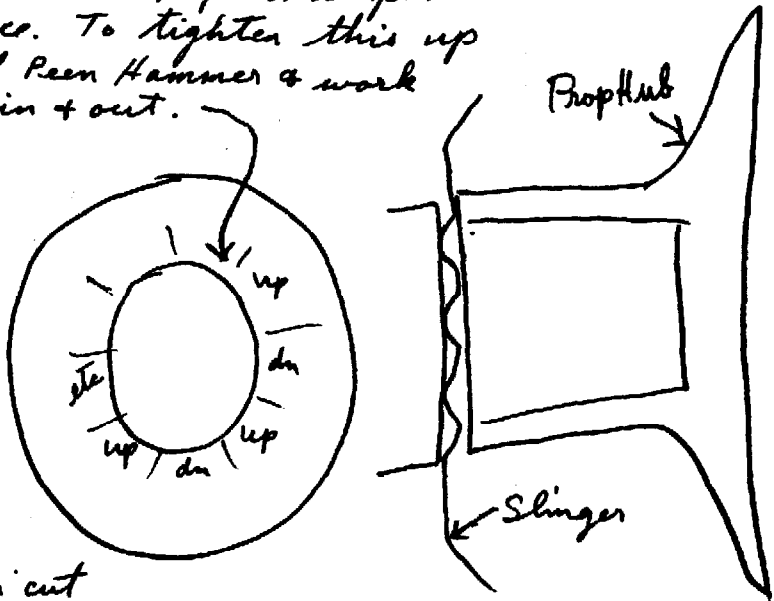 ce. To tighten this up
Peen Hammer & work
in & out.
Prop Hub
up
dn
etc
up
dn
up
Slinger
cut